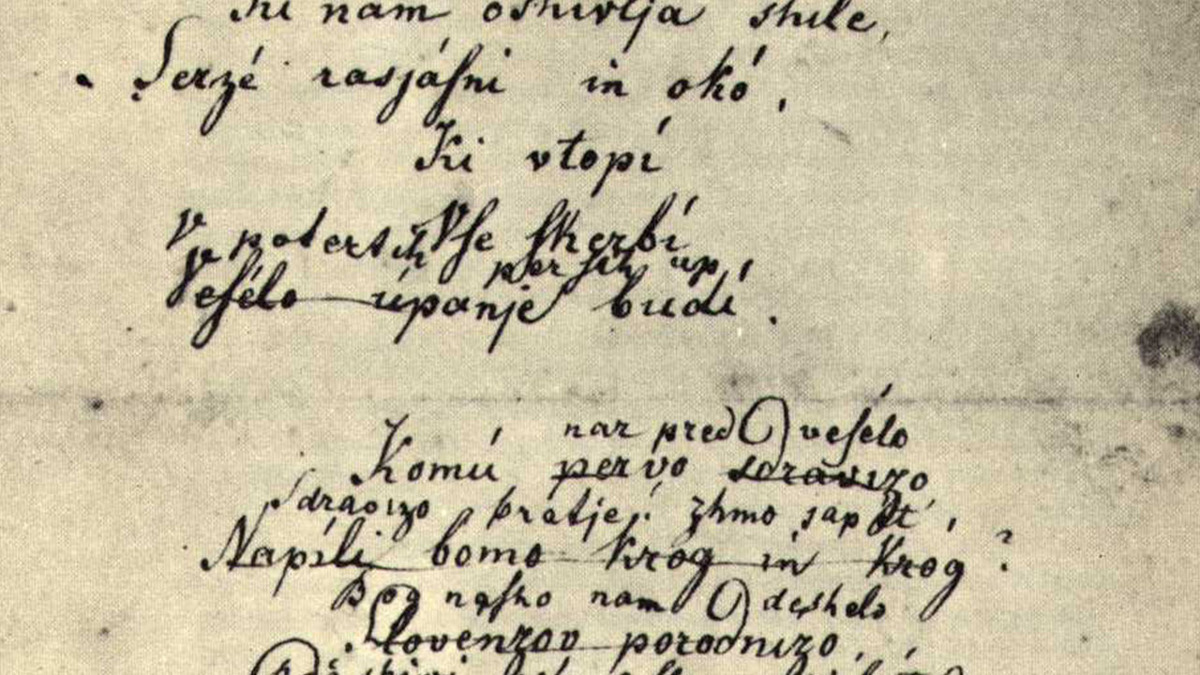 Ki nam oshivlja shile,
Serzé rasjáſni in okó,
Ki vtopí
Vſe ſkerbí
V potertih perſih up
Veſélo úpanje budí.
nar pred veſélo
Komú pervo sdravizo
Sdravizo, bratje! zhmo sapét',
Napíli bomo krog in krog?
Bog naſho nam deshelo
Slovénzov porodnizo,